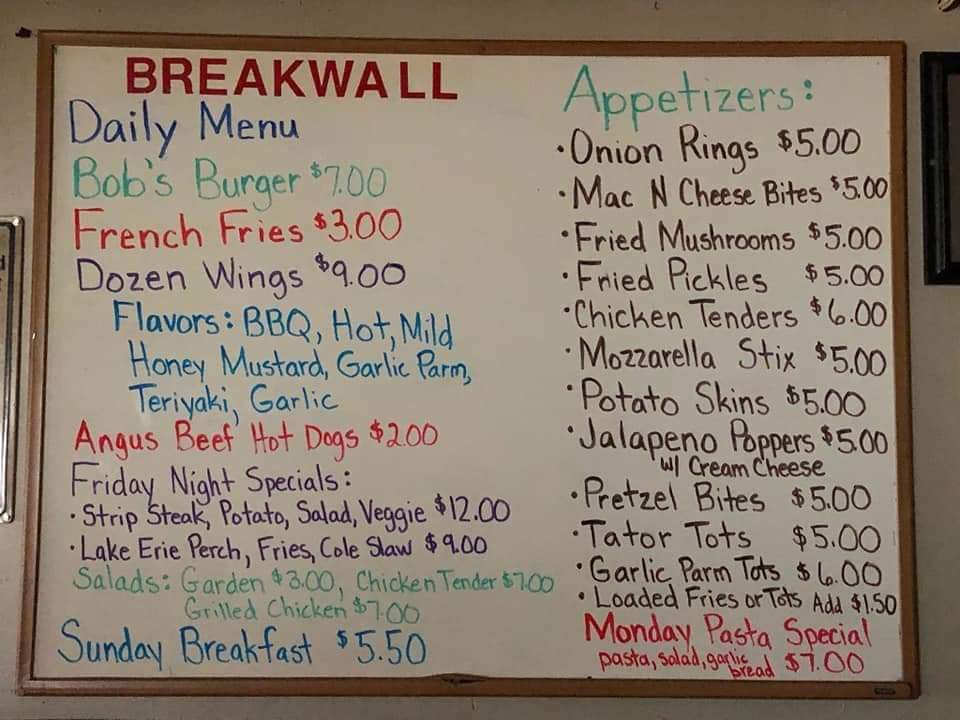 BREAKWALL
Daily Menu
Bob's Burger $7.00
French Fries $3.00
Dozen Wings $9.00
Flavors: BBQ, Hot, Mild
Honey Mustard, Garlic Parm,
Teriyaki, Garlic
Angus Beef Hot Dogs $2.00
Friday Night Specials:
· Strip Steak, Potato, Salad, Veggie $12.00
· Lake Erie Perch, Fries, Cole Slaw $9.00
Salads: Garden $3.00, Chicken Tender $7.00
Grilled Chicken $7.00
Sunday Breakfast $5.50
Appetizers:
· Onion Rings $5.00
· Mac N Cheese Bites $5.00
· Fried Mushrooms $5.00
· Fried Pickles $5.00
· Chicken Tenders $6.00
· Mozzarella Stix $5.00
· Potato Skins $5.00
· Jalapeno Poppers $5.00
w/ Cream Cheese
· Pretzel Bites $5.00
· Tator Tots $5.00
· Garlic Parm Tots $6.00
· Loaded Fries or Tots Add $1.50
Monday Pasta Special
pasta, salad, garlic bread $7.00